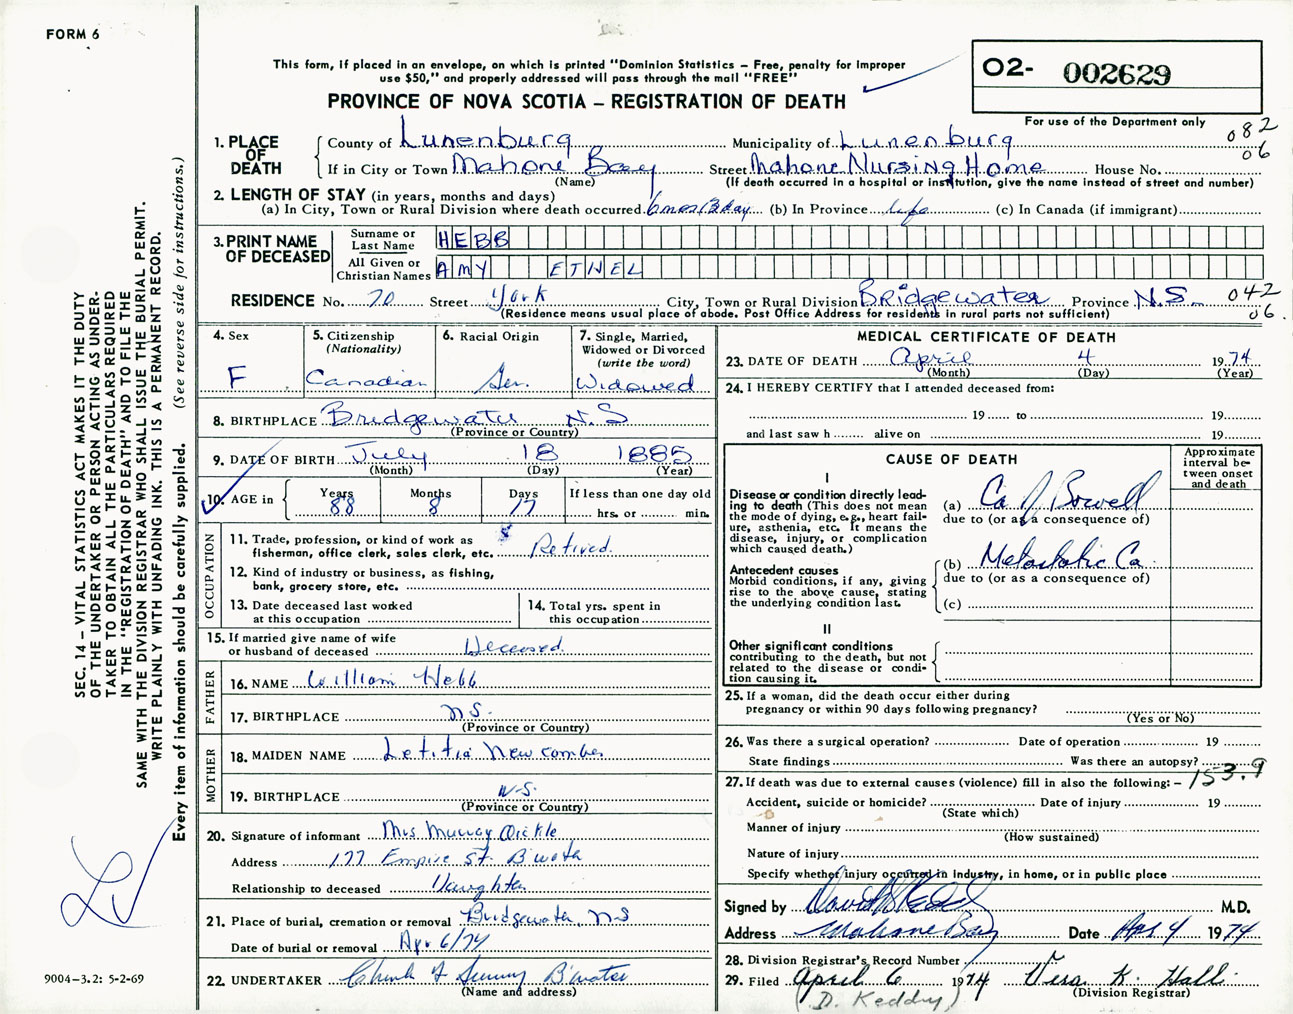 FORM 6
This form, if placed in an envelope, on which is printed "Dominion Statistics – Free, penalty for improper
use $50," and properly addressed will pass through the mail "FREE"
PROVINCE OF NOVA SCOTIA – REGISTRATION OF DEATH
02- 002629
For use of the Department only
082
06
1. PLACE OF DEATH
County of Lunenburg Municipality of Lunenburg
If in City or Town Mahone Bay Street Mahone Nursing Home House No.
(Name) (If death occurred in a hospital or institution, give the name instead of street and number)
2. LENGTH OF STAY (in years, months and days)
(a) In City, Town or Rural Division where death occurred 6 mos 13 day (b) In Province life (c) In Canada (if immigrant)
3. PRINT NAME OF DECEASED
Surname or Last Name HEBB
All Given or Christian Names AMY ETHEL
RESIDENCE No. 70 Street York City, Town or Rural Division Bridgewater Province N.S. 042
(Residence means usual place of abode. Post Office Address for residents in rural parts not sufficient) 06.
4. Sex
F
5. Citizenship
(Nationality)
Canadian
6. Racial Origin
Ger.
7. Single, Married,
Widowed or Divorced
(write the word)
Widowed
8. BIRTHPLACE Bridgewater N.S
(Province or Country)
9. DATE OF BIRTH July 18 1885
(Month) (Day) (Year)
10. AGE in
Years Months Days If less than one day old
88 8 17 hrs. or min.
OCCUPATION
11. Trade, profession, or kind of work as
fisherman, office clerk, sales clerk, etc. Retired.
12. Kind of industry or business, as fishing,
bank, grocery store, etc.
13. Date deceased last worked
at this occupation
14. Total yrs. spent in
this occupation
15. If married give name of wife
or husband of deceased Deceased.
FATHER
16. NAME William Hebb
17. BIRTHPLACE N.S.
(Province or Country)
MOTHER
18. MAIDEN NAME Letitia Newcombe
19. BIRTHPLACE N.S.
(Province or Country)
20. Signature of informant Mrs Murray Oickle
Address 177 Empire St. B'water
Relationship to deceased Daughter
21. Place of burial, cremation or removal Bridgewater, N.S
Date of burial or removal Apr 6/74
22. UNDERTAKER B'water
(Name and address)
MEDICAL CERTIFICATE OF DEATH
23. DATE OF DEATH April 4 1974
(Month) (Day) (Year)
24. I HEREBY CERTIFY that I attended deceased from:
19 to 19
and last saw h alive on 19
CAUSE OF DEATH
Approximate
interval be-
tween onset
and death
I
Disease or condition directly lead-
ing to death (This does not mean
the mode of dying, e.g., heart fail-
ure, asthenia, etc. It means the
disease, injury, or complication
which caused death.)
(a) Ca of Bowell
due to (or as a consequence of)
Antecedent causes
Morbid conditions, if any, giving
rise to the above cause, stating
the underlying condition last.
(b) Metastatic Ca
due to (or as a consequence of)
(c)
II
Other significant conditions
contributing to the death, but not
related to the disease or condi-
tion causing it.
25. If a woman, did the death occur either during
pregnancy or within 90 days following pregnancy?
(Yes or No)
26. Was there a surgical operation? Date of operation 19
State findings Was there an autopsy?
153.9
27. If death was due to external causes (violence) fill in also the following: –
Accident, suicide or homicide? Date of injury 19
(State which)
Manner of injury
(How sustained)
Nature of injury
Specify whether injury occurred in industry, in home, or in public place
Signed by David M.D.
Address Mahone Bay Date Apr 4 1974
28. Division Registrar's Record Number
29. Filed April 6 1974 Vera K. Hall
(Division Registrar)
(D. Keddy)
SEC. 14 – VITAL STATISTICS ACT MAKES IT THE DUTY
OF THE UNDERTAKER OR PERSON ACTING AS UNDER-
TAKER TO OBTAIN ALL THE PARTICULARS REQUIRED
IN THE "REGISTRATION OF DEATH" AND TO FILE THE
SAME WITH THE DIVISION REGISTRAR WHO SHALL ISSUE THE BURIAL PERMIT.
WRITE PLAINLY WITH UNFADING INK. THIS IS A PERMANENT RECORD.
Every item of information should be carefully supplied. (See reverse side for instructions.)
9004–3.2: 5-2-69